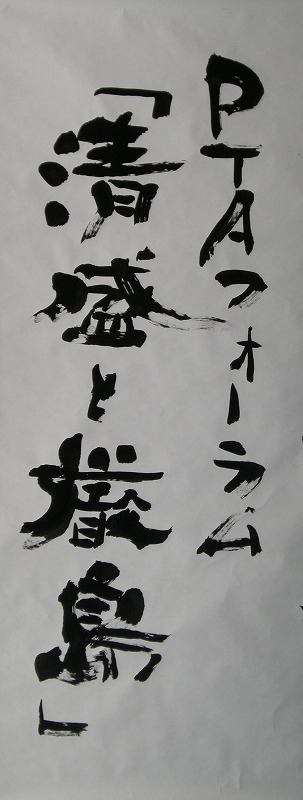 PTAフォーラム
「清盛と厳島」